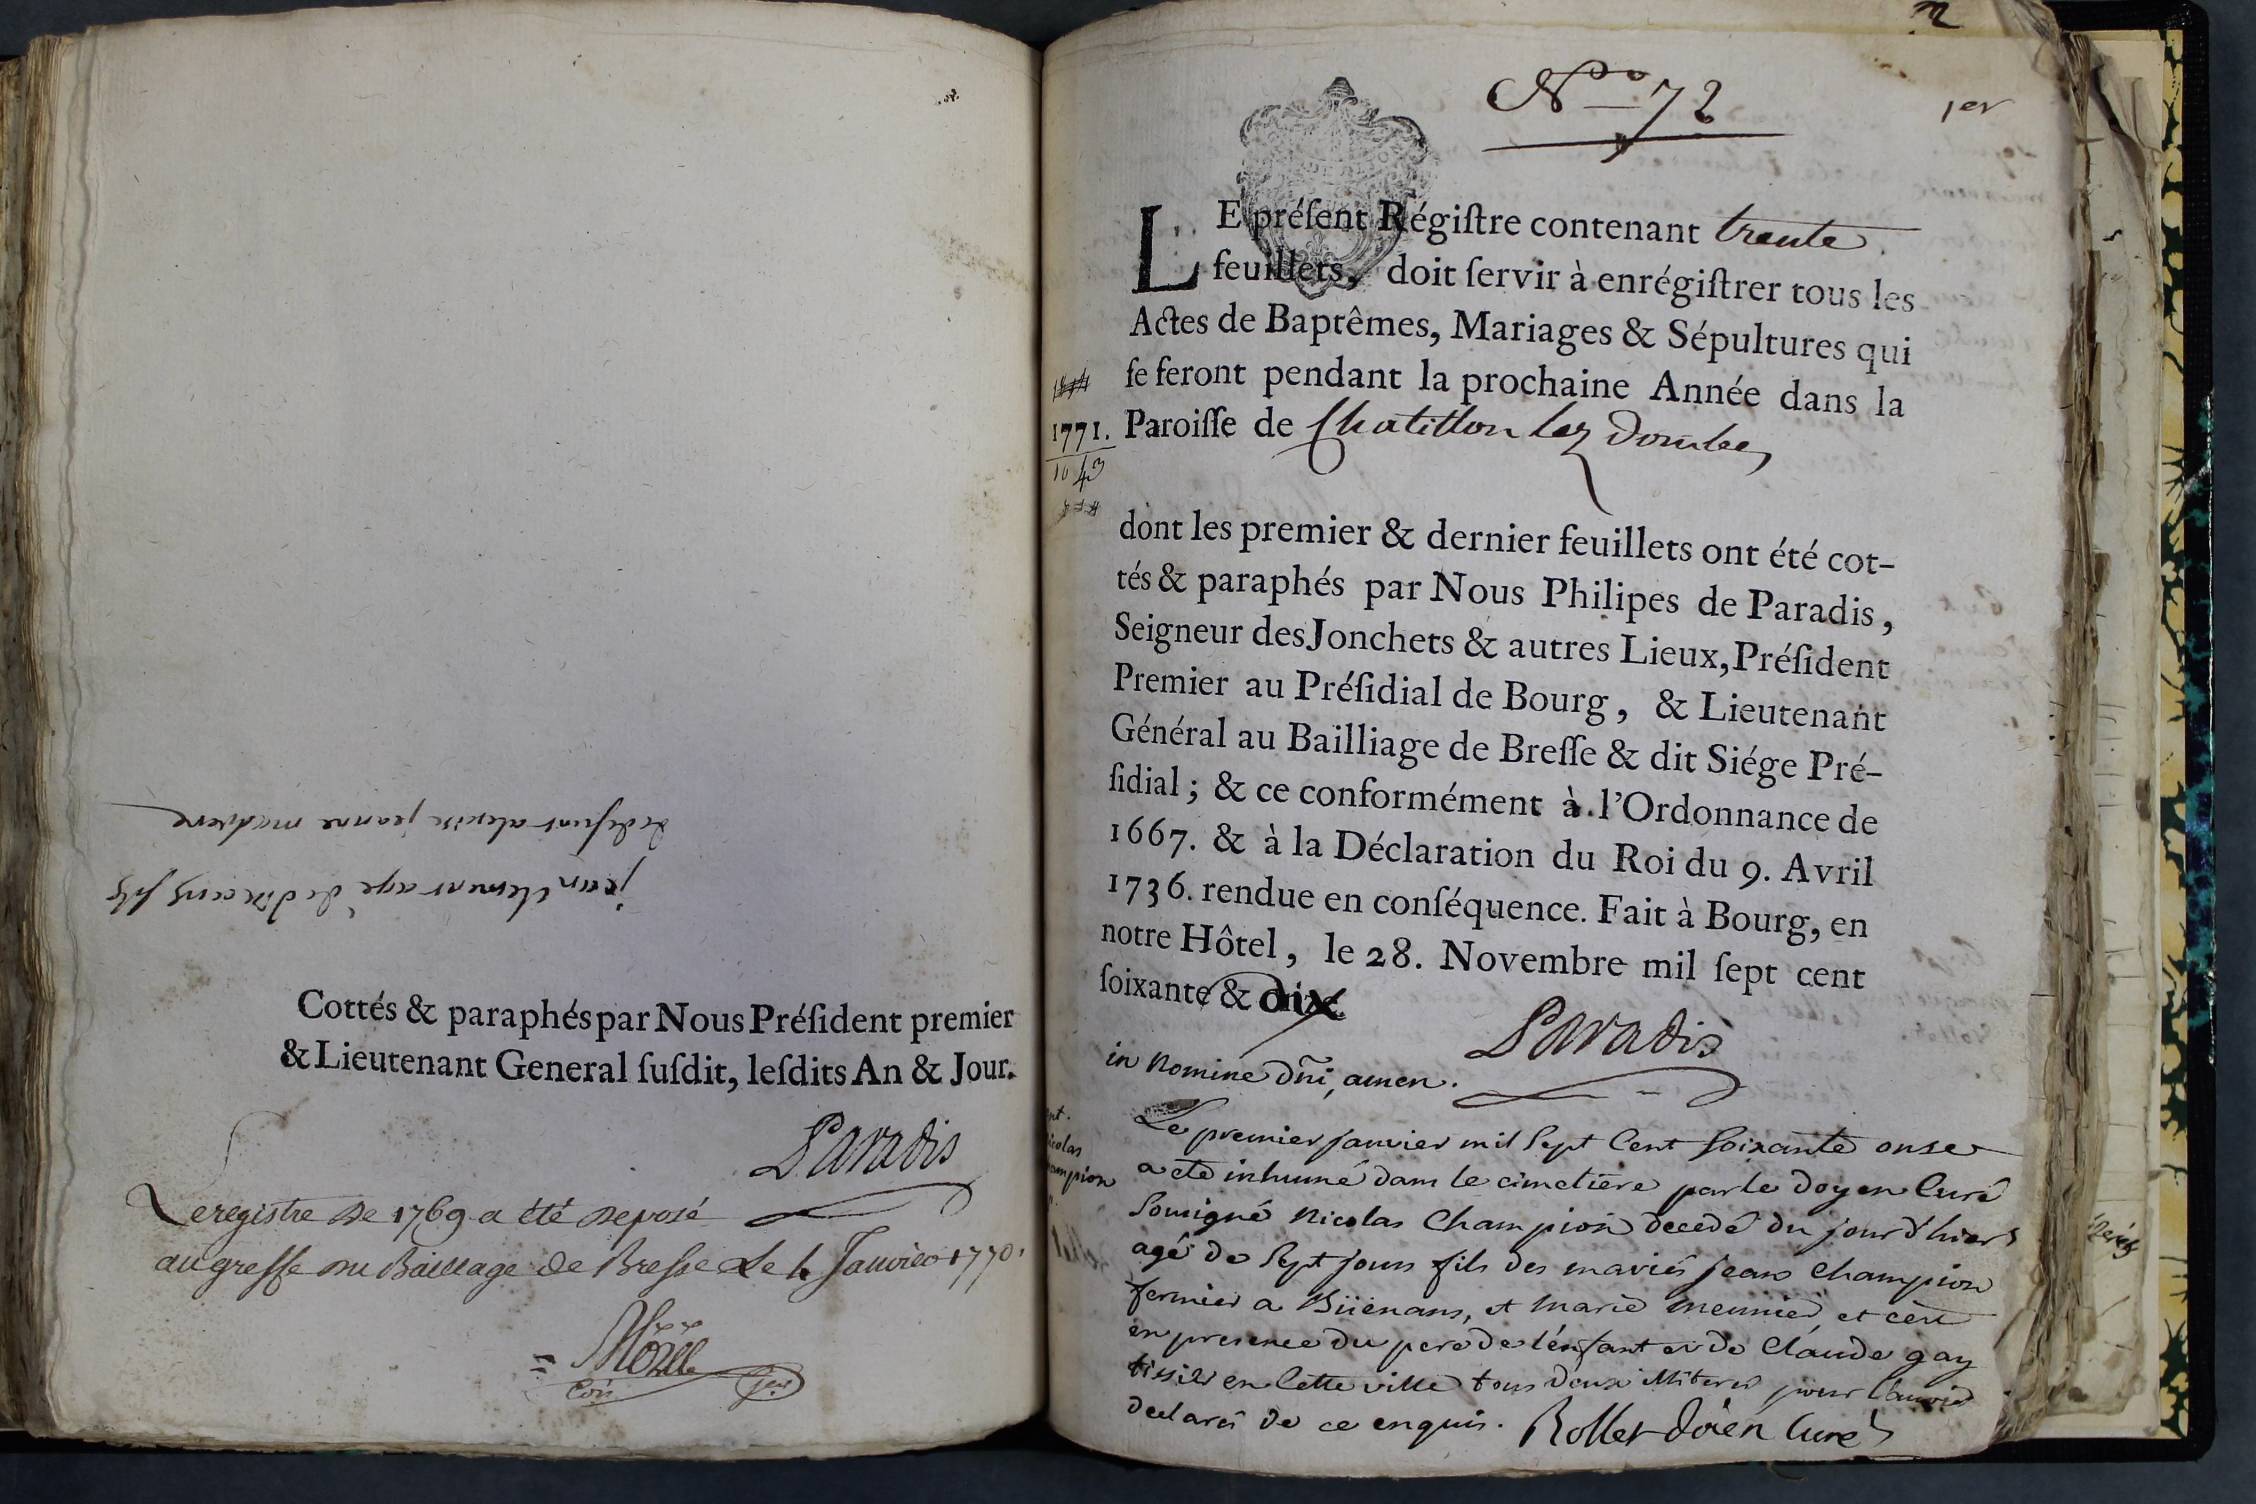 jean Clement agé de dix cinq fils
de defunt alexis jeanne mad
Cottés & paraphés par Nous Préſident premier
& Lieutenant General ſuſdit, leſdits An & Jour.
Paradis
Le registre de 1769 a été deposé
au greffe du Bailliage de Bresse Le 4 Janvier 1770
N.º 72
1er
LE préſent Régiſtre contenant trente
feuillets, doit ſervir à enrégiſtrer tous les
Actes de Baptêmes, Mariages & Sépultures qui
ſe feront pendant la prochaine Année dans la
1771. Paroiſſe de Chatillon lez Dombes
1043
dont les premier & dernier feuillets ont été cot-
tés & paraphés par Nous Philipes de Paradis,
Seigneur des Jonchets & autres Lieux, Préſident
Premier au Préſidial de Bourg, & Lieutenant
Général au Bailliage de Breſſe & dit Siége Pré-
ſidial; & ce conformément à l'Ordonnance de
1667. & à la Déclaration du Roi du 9. Avril
1736. rendue en conſéquence. Fait à Bourg, en
notre Hôtel, le 28. Novembre mil ſept cent
ſoixante & dix
Paradis
in nomine dni, amen.
nt.
icolas
ampion
Le premier janvier mil Sept Cent Soixante onse
a eté inhumé dans le cimetiere par le doyen Curé
Sousigné nicolas Champion decedé du jour d'hier
agé de Sept jours fils des mariés jean Champion
fermier a Büenans, et marie meunier, et cest
en presence du pere de l'enfant et de Claude gay
tissier en Cette ville tous deux illiteres pour l'avoir
declaré de ce enquis. Rollet doïen Curé